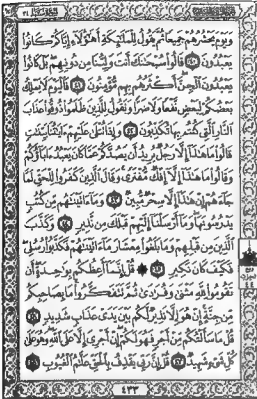 وَيَوْمَ يَحْشُرُهُمْ جَمِيعًا ثُمَّ يَقُولُ لِلْمَلَٰٓئِكَةِ أَهَٰٓؤُلَآءِ إِيَّاكُمْ كَانُوا۟
يَعْبُدُونَ ﴿٤٠﴾ قَالُوا۟ سُبْحَٰنَكَ أَنتَ وَلِيُّنَا مِن دُونِهِم بَلْ كَانُوا۟
يَعْبُدُونَ ٱلْجِنَّ أَكْثَرُهُم بِهِم مُّؤْمِنُونَ ﴿٤١﴾ فَٱلْيَوْمَ لَا يَمْلِكُ
بَعْضُكُمْ لِبَعْضٍ نَّفْعًا وَلَا ضَرًّا وَنَقُولُ لِلَّذِينَ ظَلَمُوا۟ ذُوقُوا۟ عَذَابَ
ٱلنَّارِ ٱلَّتِى كُنتُم بِهَا تُكَذِّبُونَ ﴿٤٢﴾ وَإِذَا تُتْلَىٰ عَلَيْهِمْ ءَايَٰتُنَا بَيِّنَٰتٍ
قَالُوا۟ مَا هَٰذَآ إِلَّا رَجُلٌ يُرِيدُ أَن يَصُدَّكُمْ عَمَّا كَانَ يَعْبُدُ ءَابَآؤُكُمْ
وَقَالُوا۟ مَا هَٰذَآ إِلَّآ إِفْكٌ مُّفْتَرًى وَقَالَ ٱلَّذِينَ كَفَرُوا۟ لِلْحَقِّ لَمَّا
جَآءَهُمْ إِنْ هَٰذَآ إِلَّا سِحْرٌ مُّبِينٌ ﴿٤٣﴾ وَمَآ ءَاتَيْنَٰهُم مِّن كُتُبٍ
يَدْرُسُونَهَا وَمَآ أَرْسَلْنَآ إِلَيْهِمْ قَبْلَكَ مِن نَّذِيرٍ ﴿٤٤﴾ وَكَذَّبَ
ٱلَّذِينَ مِن قَبْلِهِمْ وَمَا بَلَغُوا۟ مِعْشَارَ مَآ ءَاتَيْنَٰهُمْ فَكَذَّبُوا۟ رُسُلِى
فَكَيْفَ كَانَ نَكِيرِ ﴿٤٥﴾ ۞ قُلْ إِنَّمَآ أَعِظُكُم بِوَٰحِدَةٍ أَن
تَقُومُوا۟ لِلَّهِ مَثْنَىٰ وَفُرَٰدَىٰ ثُمَّ تَتَفَكَّرُوا۟ مَا بِصَاحِبِكُم
مِّن جِنَّةٍ إِنْ هُوَ إِلَّا نَذِيرٌ لَّكُم بَيْنَ يَدَىْ عَذَابٍ شَدِيدٍ ﴿٤٦﴾
قُلْ مَا سَأَلْتُكُم مِّنْ أَجْرٍ فَهُوَ لَكُمْ إِنْ أَجْرِىَ إِلَّا عَلَى ٱللَّهِ وَهُوَ عَلَىٰ
كُلِّ شَىْءٍ شَهِيدٌ ﴿٤٧﴾ قُلْ إِنَّ رَبِّى يَقْذِفُ بِٱلْحَقِّ عَلَّٰمُ ٱلْغُيُوبِ ﴿٤٨﴾
٤٣٣